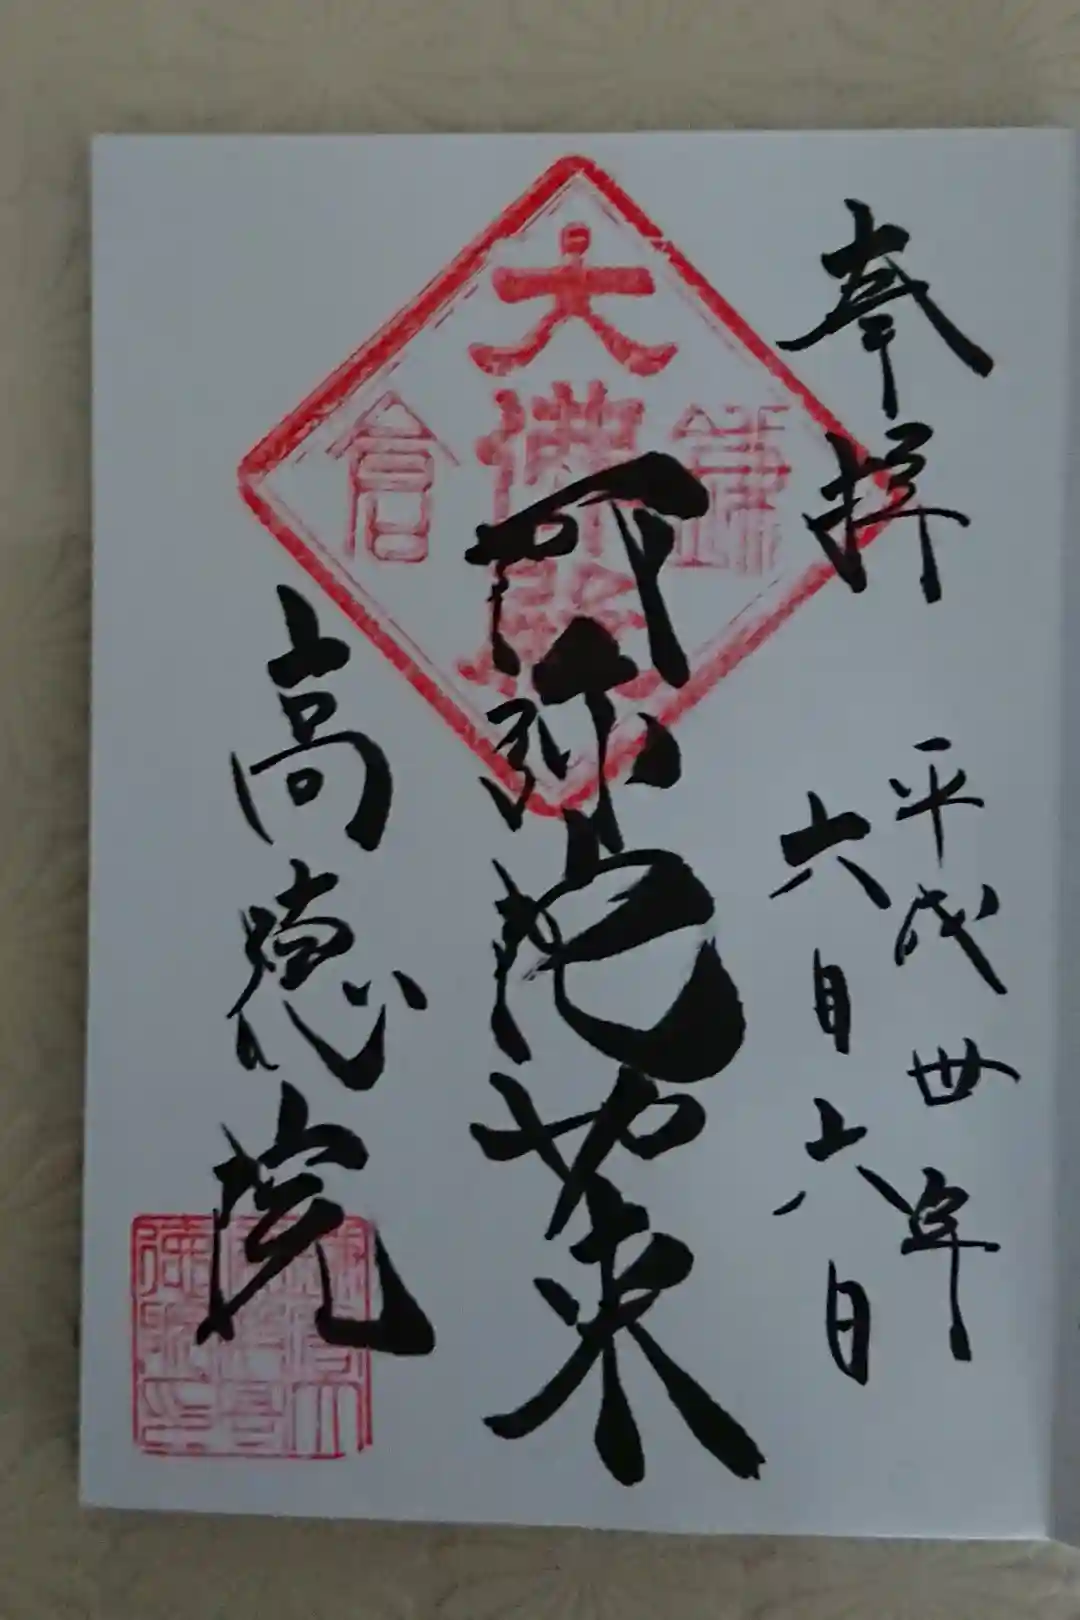 奉拝
平成卅年
六月六日
大佛殿
鎌
倉
阿弥陀如来
高徳院